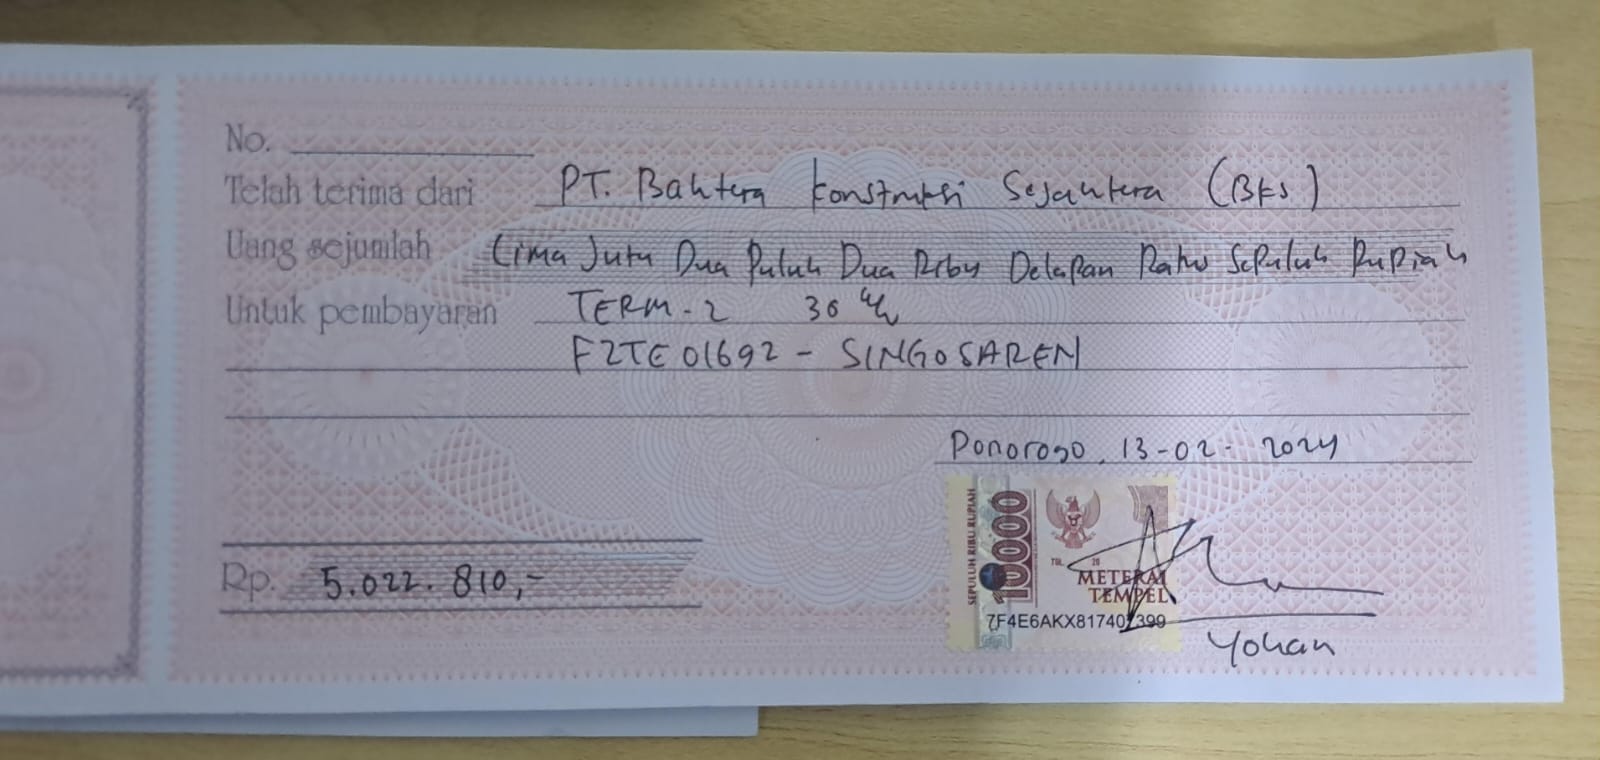 No.
Telah terima dari PT. Bahtera Konstruksi Sejahtera (BKS)
Uang sejumlah Lima Juta Dua Puluh Dua Ribu Delapan Ratus Sepuluh Rupiah
Untuk pembayaran TERM-2 30%
FZTE01692 - SINGOSAREN
Ponorogo, 13-02-2024
SEPULUH RIBU RUPIAH
10000
TGL. 20
METERAI
TEMPEL
Rp. 5.022.810,-
Yohan